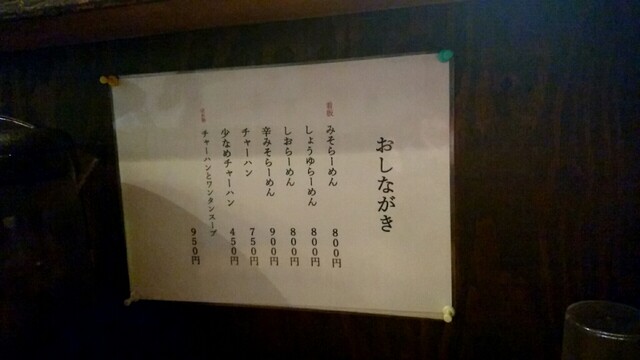 おしながき
看板 みそらーめん 800円
しょうゆらーめん 800円
しおらーめん 800円
辛みそらーめん 900円
チャーハン 750円
少なめチャーハン 450円
チャーハンとワンタンスープ 950円